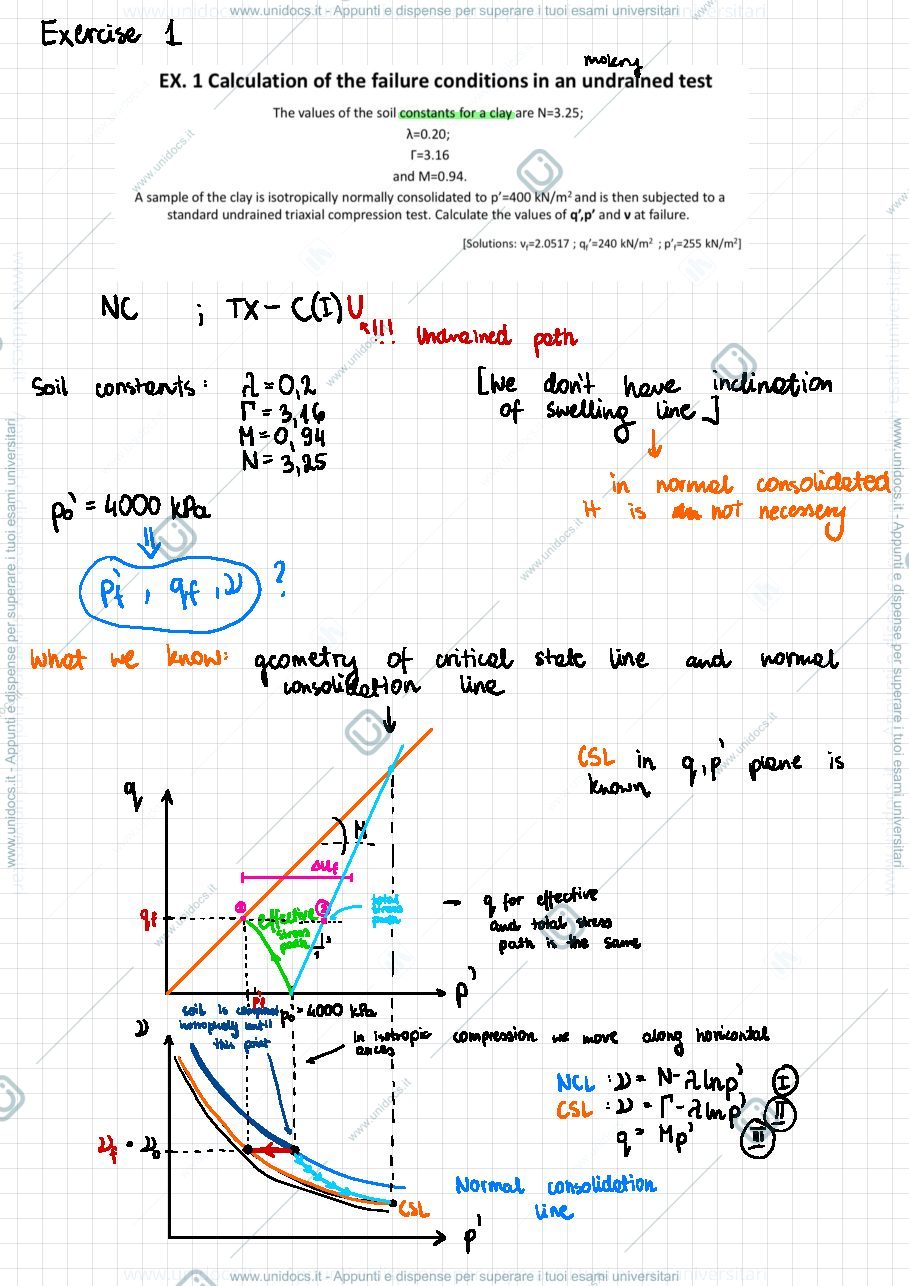 www.unidocs.it - Appunti e dispense per superare i tuoi esami universitari
Exercise 1
EX. 1 Calculation of the failure conditions in an undrained test
The values of the soil constants for a clay are N=3.25;
λ=0.20;
Γ=3.16
and M=0.94.
A sample of the clay is isotropically normally consolidated to p'=400 kN/m² and is then subjected to a
standard undrained triaxial compression test. Calculate the values of q',p' and v at failure.
[Solutions: vf=2.0517 ; qf'=240 kN/m² ; p'f=255 kN/m²]
NC ; TX - C(I)U
!!! Undrained path
Soil constants: λ=0,2
Γ=3,16
M=0,94
N=3,25
[We don't have inclination
of swelling line]
in normal consolidated
it is not necessery
po' = 4000 kPa
pf' , qf , ν ?
What we know: geometry of critical state line and normal
consolidation line
CSL in q,p' plane is
known
q
M
Δuf
qf
effective
stress
path
total
stress
path
3
1
- q for effective
and total stress
path is the same
p'
pf'
po' = 4000 kPa
soil is
isotropically until
this point
ν
In isotropic compression we move along horizontal
NCL : ν = N-λlnp' I
CSL : ν = Γ-λlnp' II
q = Mp' III
νf = ν0
Normal consolidation
line
CSL
p'
www.unidocs.it - Appunti e dispense per superare i tuoi esami universitari